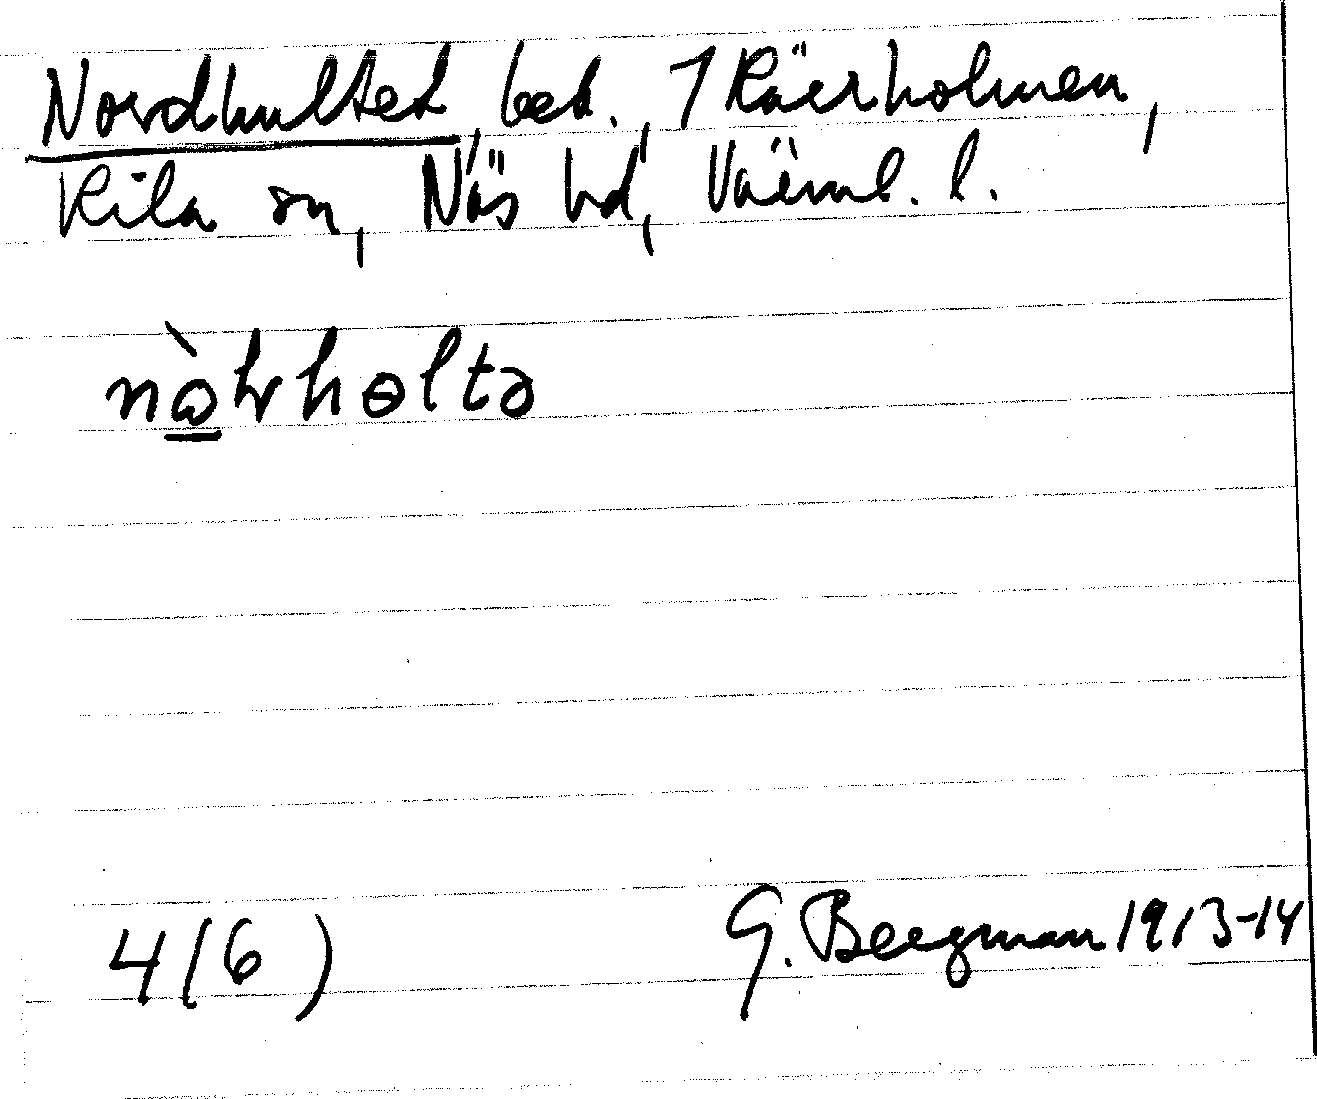 Nordhultet, beb., 1 Räerholmen,
Kila sn, Näs hd, Värml. l.
nàrhɵltə
4(6)
G. Bergman 1913-14